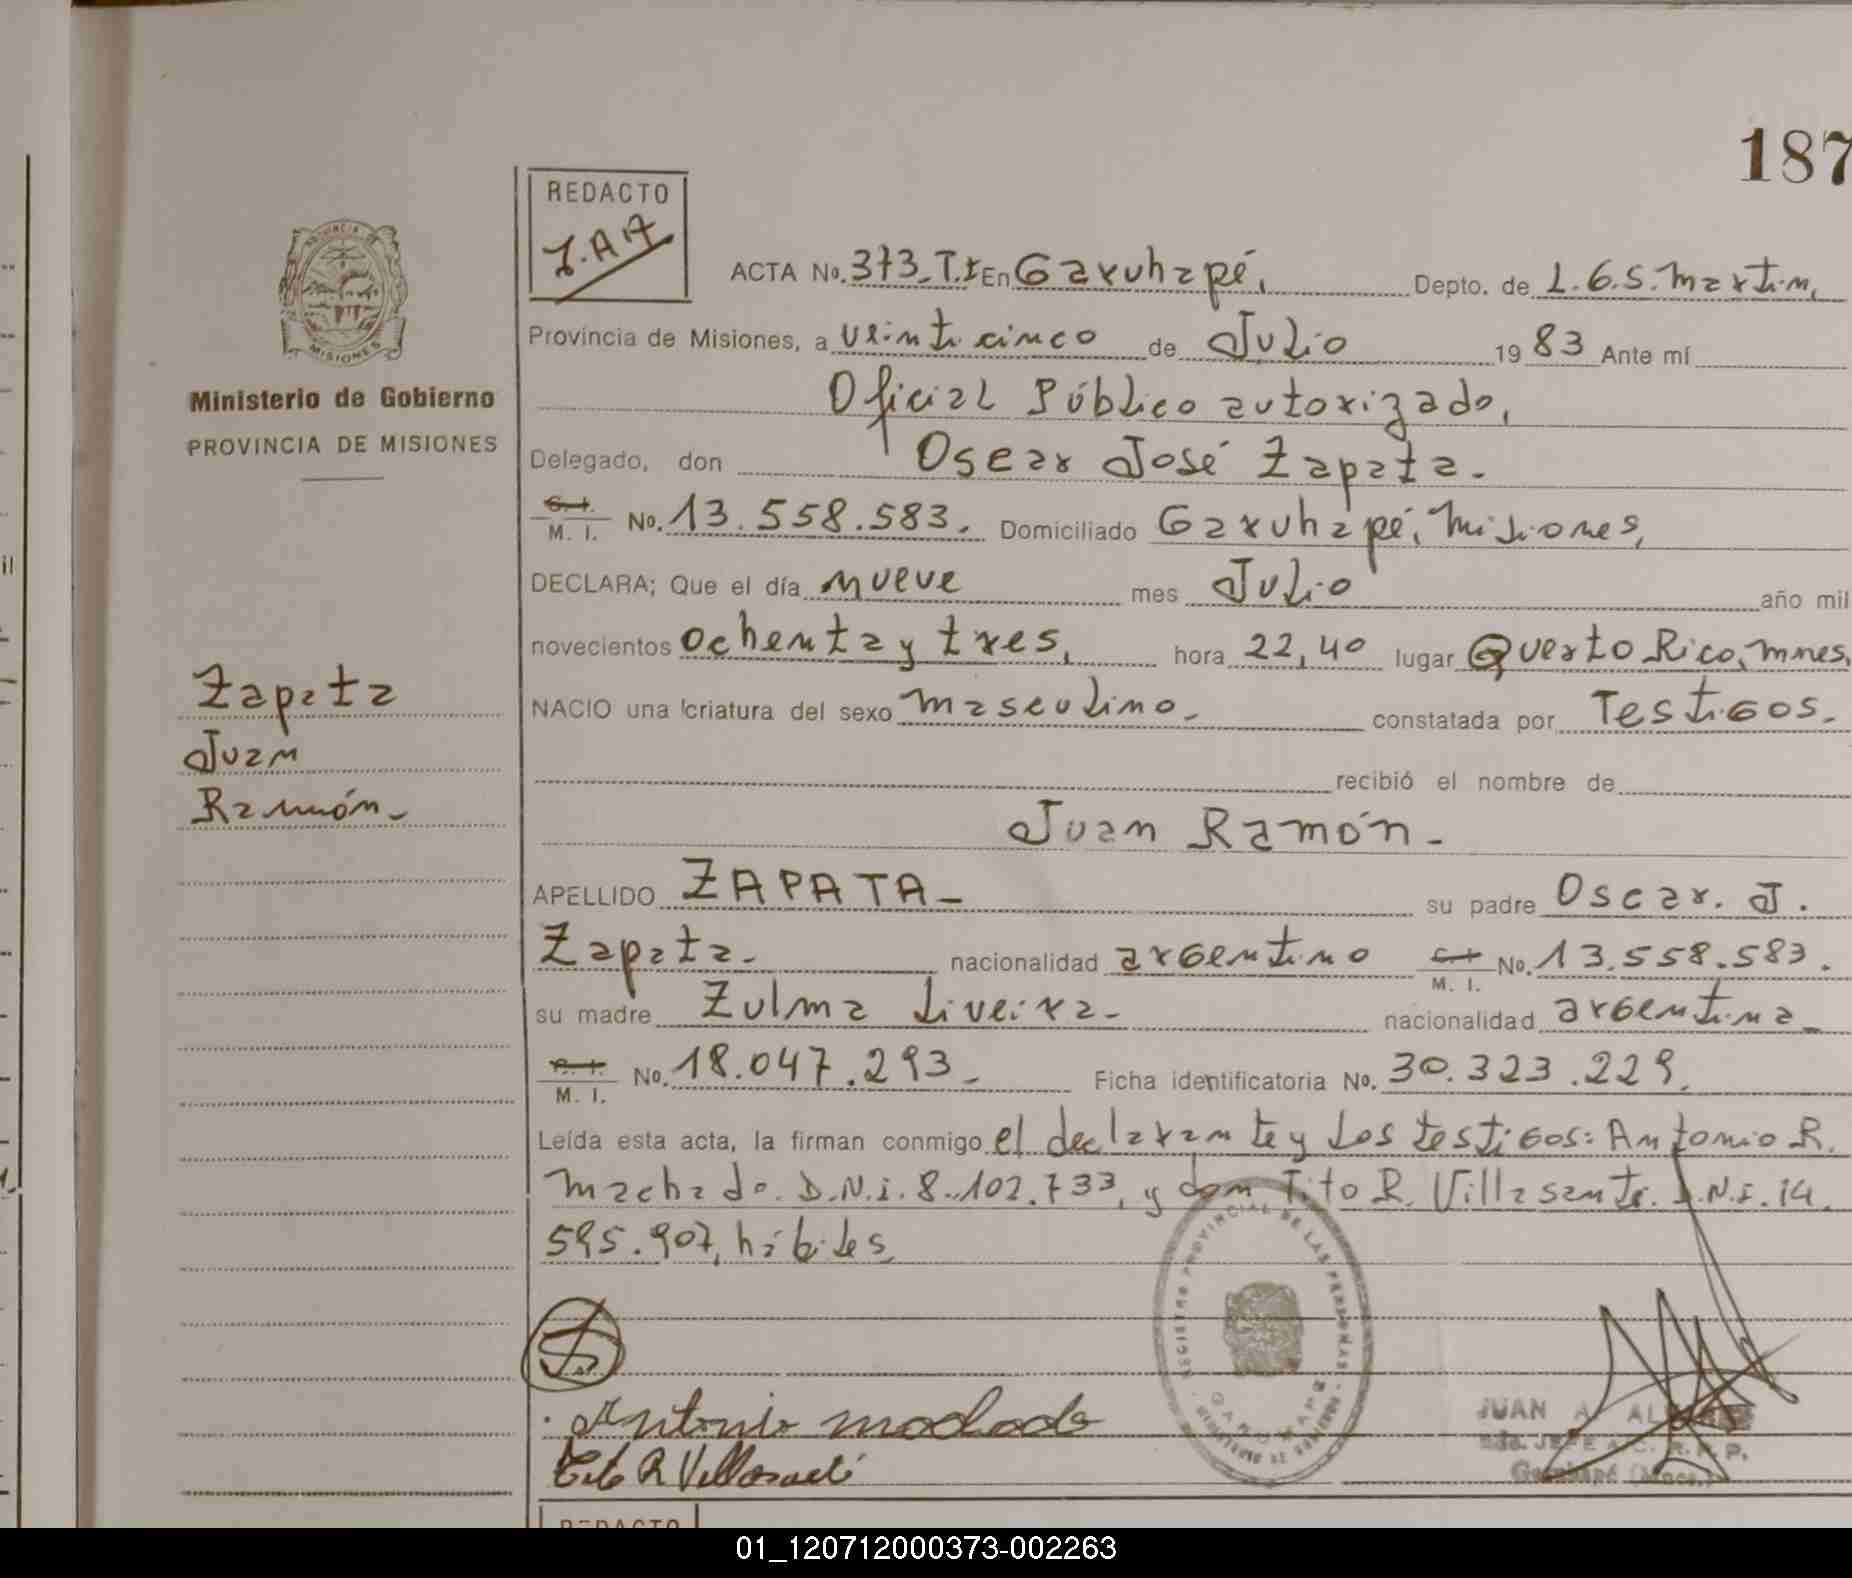 187
REDACTO
J.A.A
ACTA No. 373_T.I En Garuhapé, Depto. de L.G.S.Martin,
Provincia de Misiones, a veinticinco de Julio 19 83 Ante mí
Oficial Público autorizado,
Delegado, don Oscar José Zapata.
C.I. M. I. No. 13.558.583. Domiciliado Garuhapé, Misiones,
DECLARA; Que el día nueve mes Julio año mil
novecientos ochenta y tres, hora 22,40 lugar Puerto Rico, Mnes,
NACIO una criatura del sexo masculino_ constatada por Testigos.
recibió el nombre de
Juan Ramón_
APELLIDO ZAPATA_ su padre Oscar. J.
Zapata. nacionalidad argentino C.I. M. I. No. 13.558.583.
su madre Zulma Liveira_ nacionalidad argentina_
M. I. No. 18.047.293_ Ficha identificatoria No. 30.323.229.
Leída esta acta, la firman conmigo el declarante y los testigos: Antonio R.
Machado. D.N.i. 8.102.733, y don Tito R. Villasanti. D.N.I. 14.
595.907, hábiles,
Antonio Machado
Tito R Villasanti
MISIONES
Ministerio de Gobierno
PROVINCIA DE MISIONES
Zapata
Juan
Ramón_
REGISTRO PROVINCIAL DE LAS PERSONAS
GARUHAPE
JUAN A.
JEFE A.C. R. P. P.
Garuhapé (Mnes.)
REDACTO
01_120712000373-002263